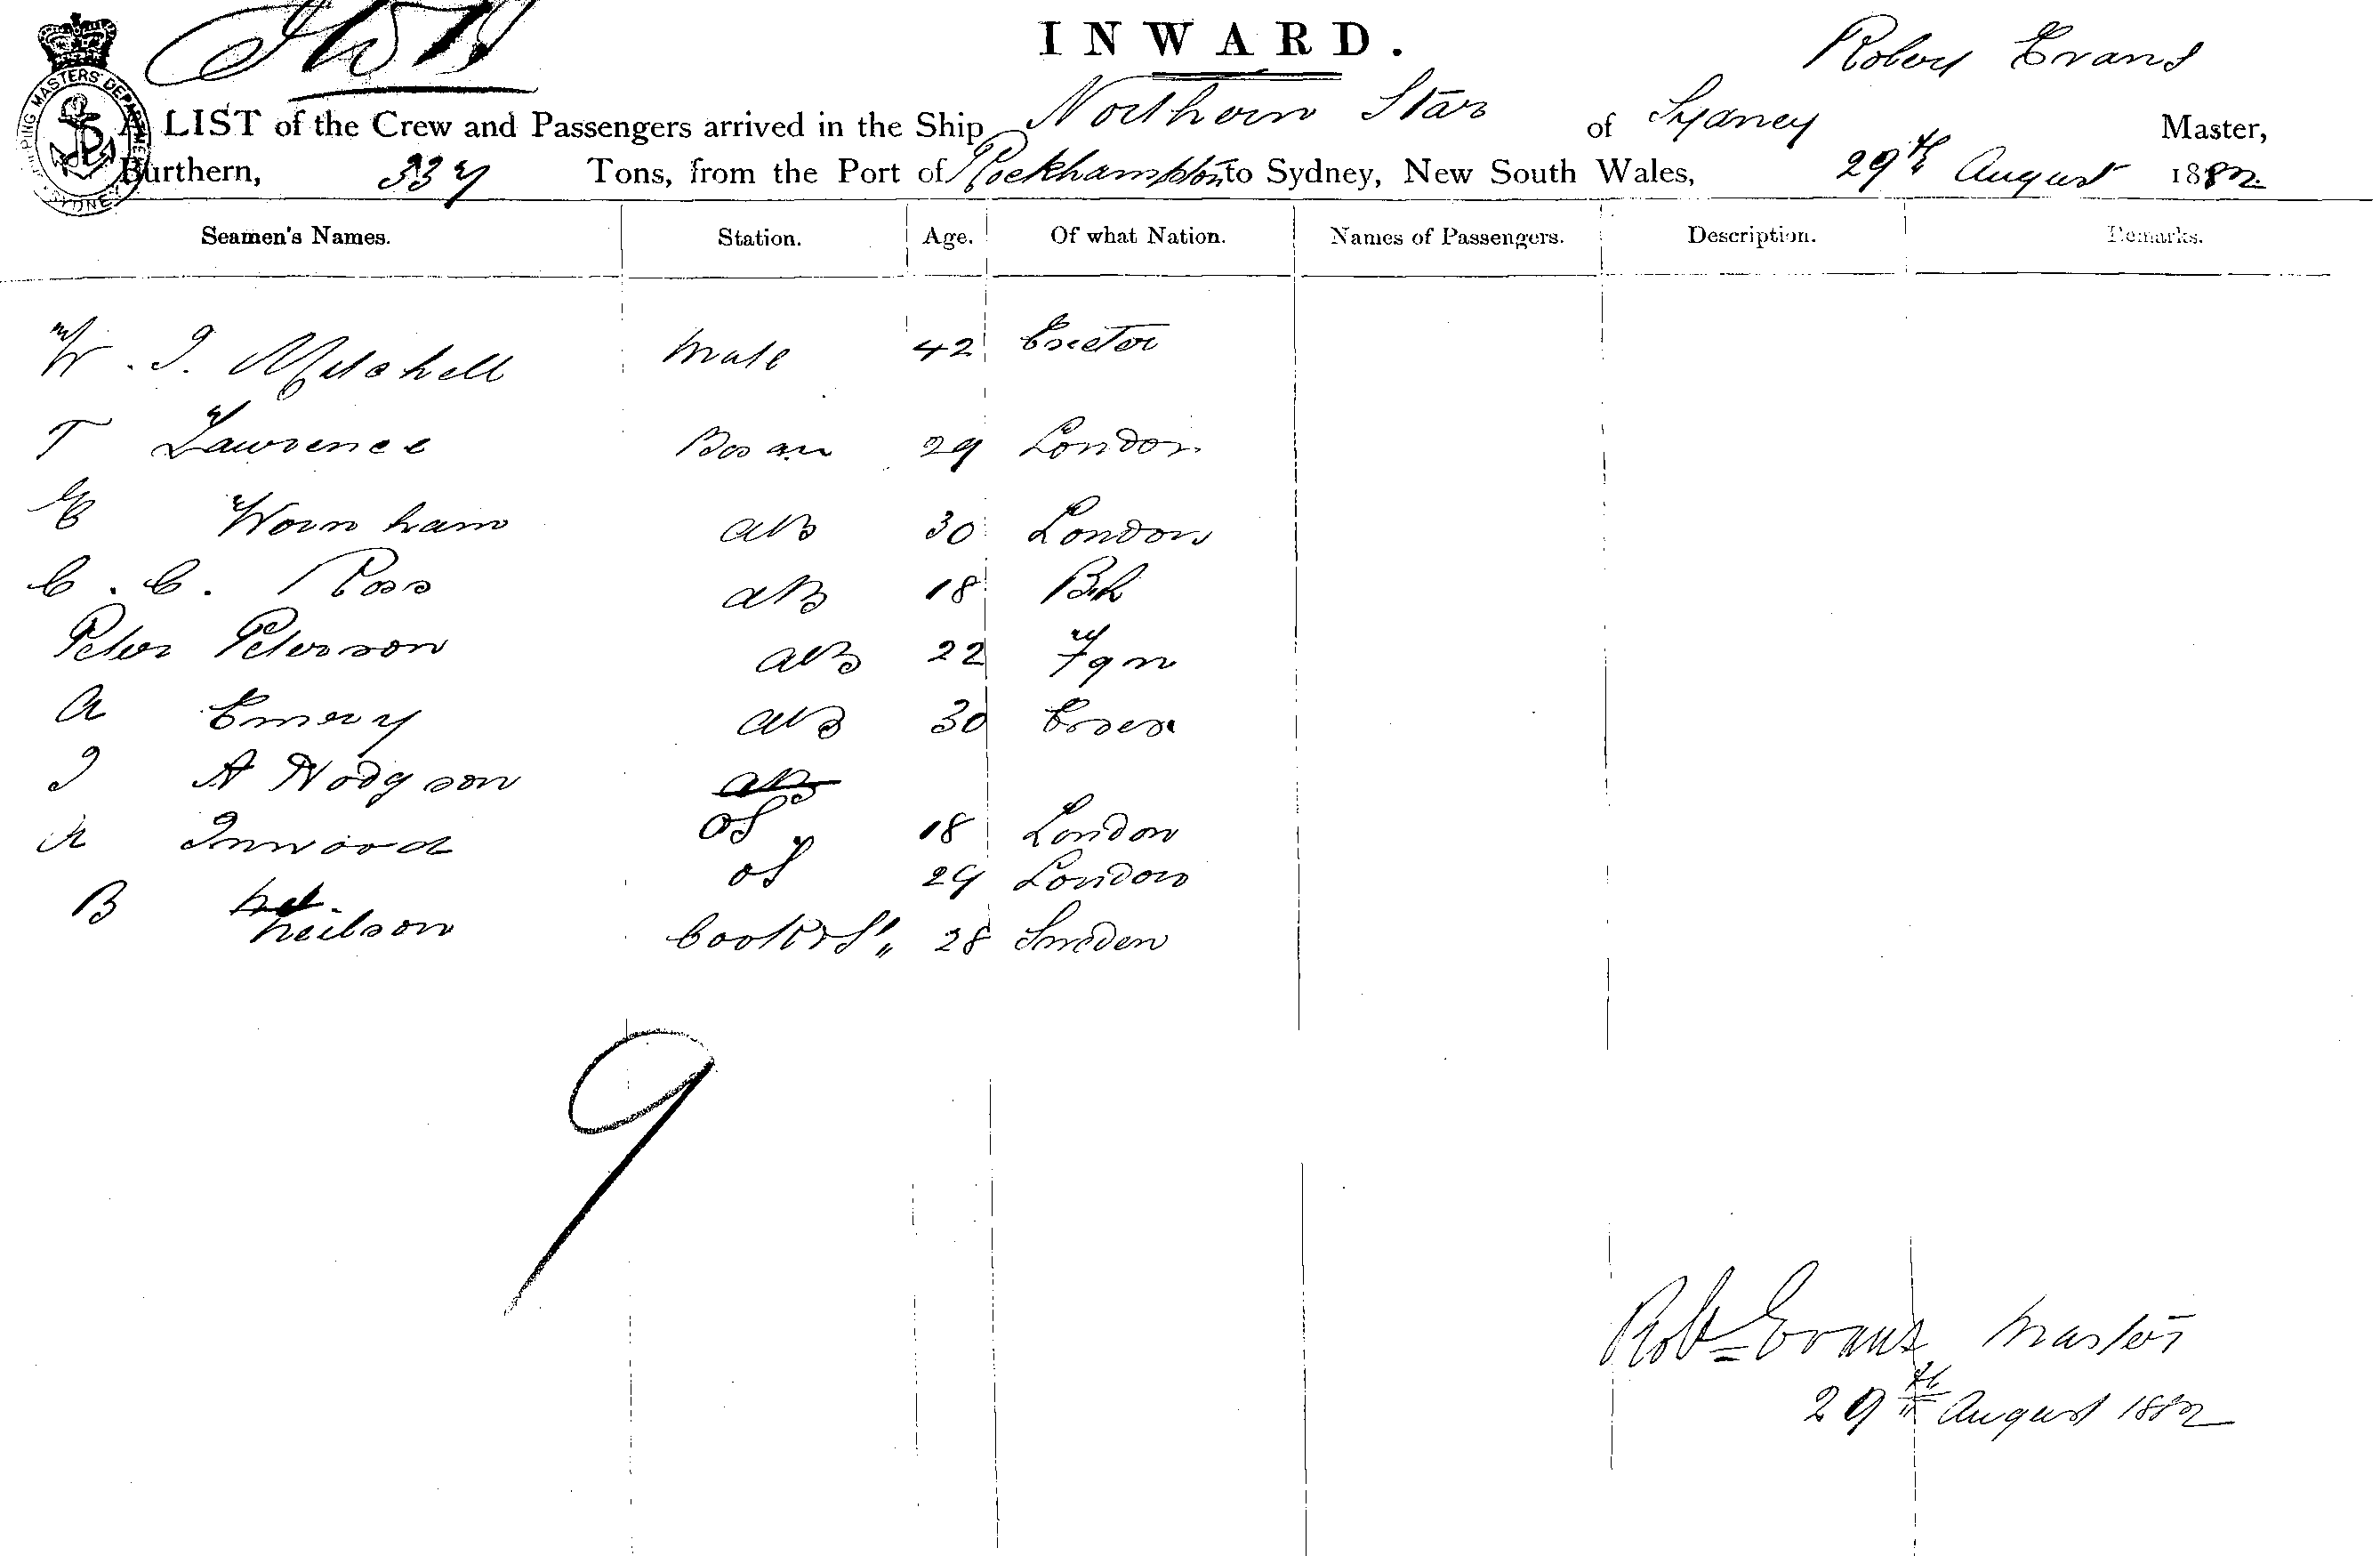 INWARD.
Robert Evans
A LIST of the Crew and Passengers arrived in the Ship Northern Star of Sydney Master,
Burthern, 337 Tons, from the Port of Rockhampton to Sydney, New South Wales, 29th August 1882
SHIPPING MASTERS' DEPARTMENT SYDNEY
Seamen's Names. Station. Age. Of what Nation. Names of Passengers. Description. Remarks.
W. J. Mitchell Mate 42 Exeter
T Lawrence Bosan 29 London
E Wornham AB 30 London
C. C. Ross AB 18 Bh
Peter Peterson AB 22 Fgn
A Emery AB 30 Essex
J A Hodgson AB OS 18 London
A Inwood OS 29 London
B Neilson Cook & St 28 Sweden
9
Robt Evans Master
29th August 1882